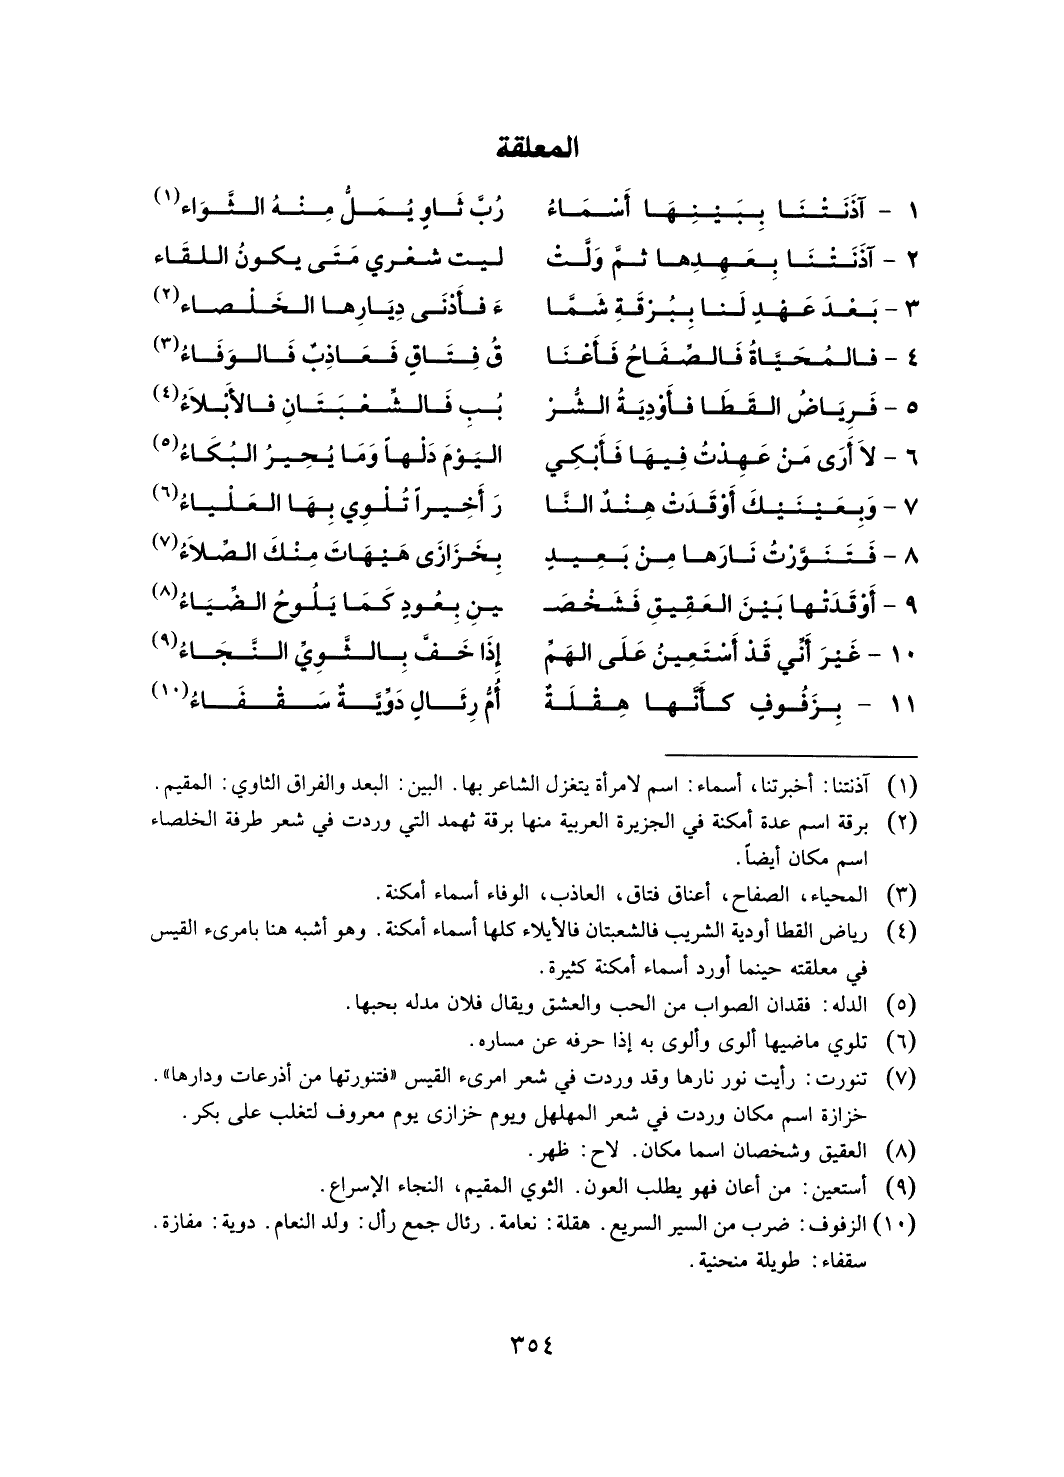 المعلقة
١ - آذَنَتْنَا بِبَيْنِهَا أَسْمَاءُ رُبَّ ثَاوٍ يُمَلُّ مِنْهُ الثَّوَاء(١)
٢ - آذَنَتْنَا بِعَهِدِها ثمَّ وَلَّتْ ليت شعْري مَتَى يكونُ اللقَاء
٣ - بَعْدَ عَهْدٍ لَنا بِبُرْقَةِ شَمَّا ءَ فَأَدْنَى دِيَارِها الخَلْصاء(٢)
٤ - فالمُحَيَّاةُ فَالصِّفَاحُ فَأَعْنَا قُ فِتَاقٍ فَعَاذِبٌ فَالوَفَاءُ(٣)
٥ - فَرِيَاضُ القَطَا فأَوْدِيَةُ الشُّرْ بُبِ فَالشِّعْبَتَانِ فالأَبْلاَءُ(٤)
٦ - لاَ أَرَى مَنْ عَهِدْتُ فِيهَا فَأَبْكِي اليَوْمَ دَلْهاً وَمَا يُحِيرُ البُكَاءُ(٥)
٧ - وَبِعَيْنَيْكَ أَوْقَدَتْ هِنْدٌ النَّا رَ أَخِيراً تُلْوِي بِهَا العَلْيَاءُ(٦)
٨ - فَتَنَوَّرْتُ نَارَها مِنْ بَعِيدٍ بِخَزَازَى هَيْهَاتَ مِنْكَ الصِّلاَءُ(٧)
٩ - أَوْقَدَتْها بَيْنَ العَقِيقِ فَشَخْصَـ ـينِ بِعُودٍ كَمَا يَلُوحُ الضِّيَاءُ(٨)
١٠ - غَيْرَ أَنِّي قَدْ أَسْتَعِينُ عَلَى الهَمِّ إِذَا خَفَّ بِالثَّوِيِّ النَّجَاءُ(٩)
١١ - بِزَفُوفٍ كَأَنَّها هِقْلَةٌ أُمُّ رِئَالٍ دَوِّيَّةٌ سَقْفَاءُ(١٠)
(١) آذنتنا: أخبرتنا، أسماء: اسم لامرأة يتغزل الشاعر بها. البين: البعد والفراق الثاوي: المقيم.
(٢) برقة اسم عدة أمكنة في الجزيرة العربية منها برقة ثهمد التي وردت في شعر طرفة الخلصاء
اسم مكان أيضاً.
(٣) المحياء، الصفاح، أعناق فتاق، العاذب، الوفاء أسماء أمكنة.
(٤) رياض القطا أودية الشريب فالشعبتان فالأيلاء كلها أسماء أمكنة. وهو أشبه هنا بامرىء القيس
في معلقته حينما أورد أسماء أمكنة كثيرة.
(٥) الدله: فقدان الصواب من الحب والعشق ويقال فلان مدله بحبها.
(٦) تلوي ماضيها ألوى وألوى به إذا حرفه عن مساره.
(٧) تنورت: رأيت نور نارها وقد وردت في شعر امرىء القيس «فتنورتها من أذرعات ودارها».
خزازة اسم مكان وردت في شعر المهلهل ويوم خزازى يوم معروف لتغلب على بكر.
(٨) العقيق وشخصان اسما مكان. لاح: ظهر.
(٩) أستعين: من أعان فهو يطلب العون. الثوي المقيم، النجاء الإسراع.
(١٠) الزفوف: ضرب من السير السريع. هقلة: نعامة. رئال جمع رأل: ولد النعام. دوية: مفازة.
سقفاء: طويلة منحنية.
٣٥٤